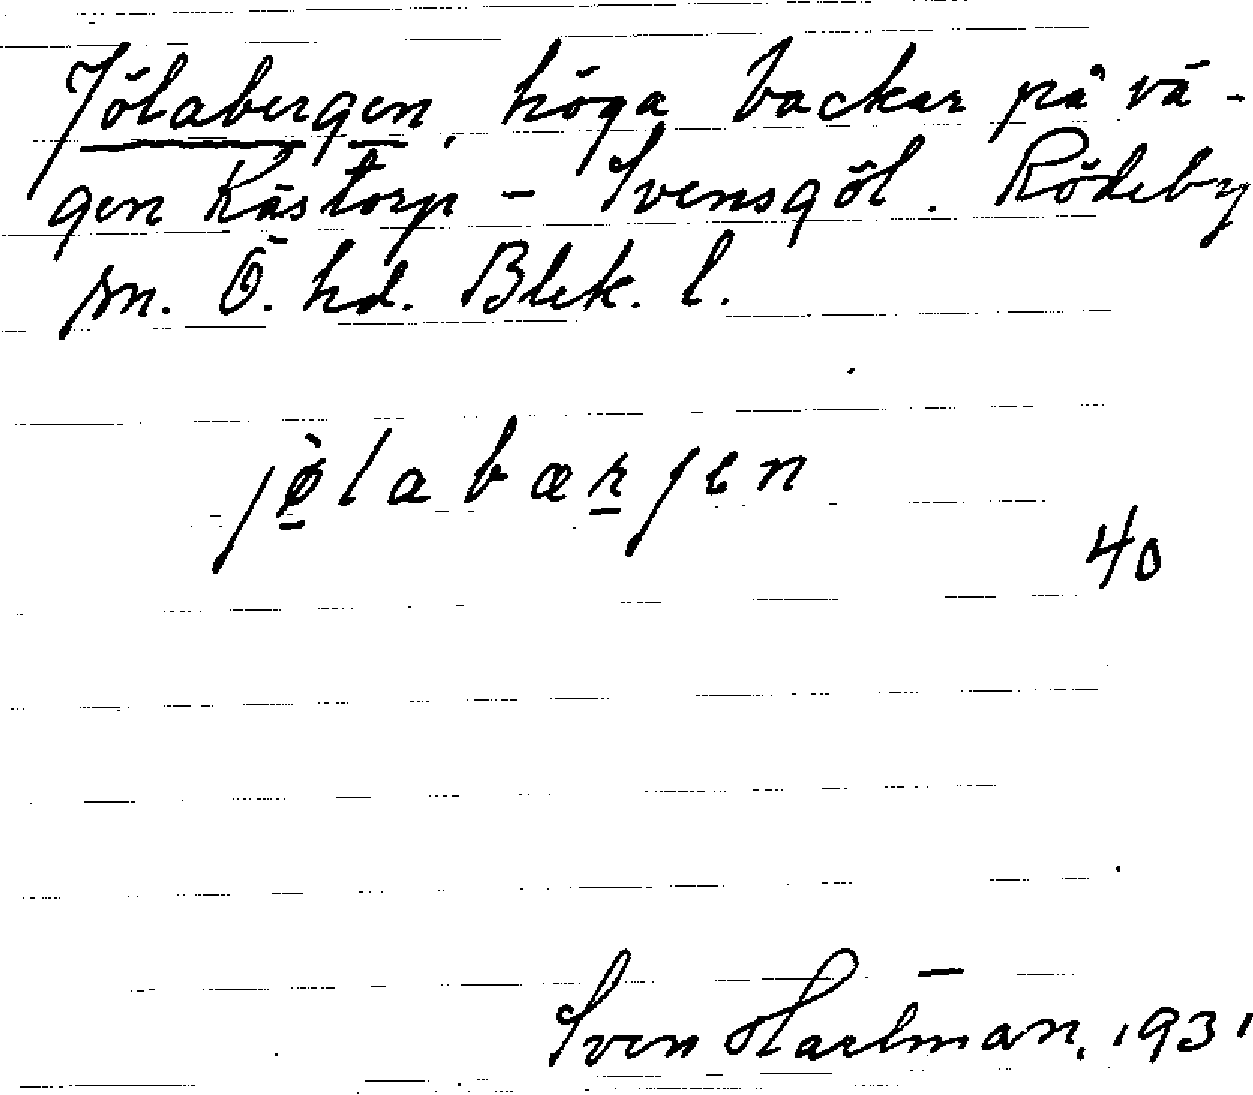 Jölabergen, höga backar på vä-
gen Kästorp - Svensgöl. Rödeby
sn. Ö. hd. Blek. l.
jø̀labærjen
40
Sven Hartman, 1931